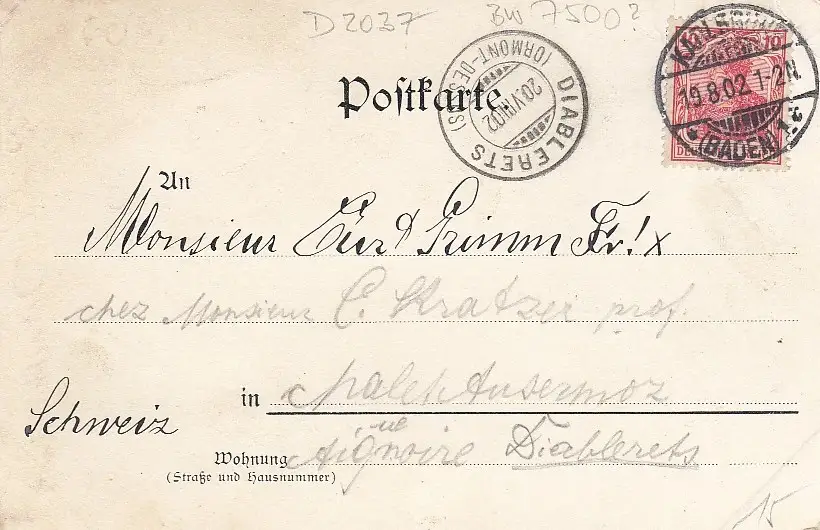 D2037 BW 7500?
DIABLERETS (ORMONT-DESSUS)
20.VIII.02
KARLSRUHE
19.8.02.1-2N.
(BADEN)
10
Postkarte.
An
Monsieur Grimm
chez Monsieur C. Kratzer prof.
in Chalet Ansermoz
Schweiz
Diablerets
Wohnung
(Straße und Hausnummer)
15